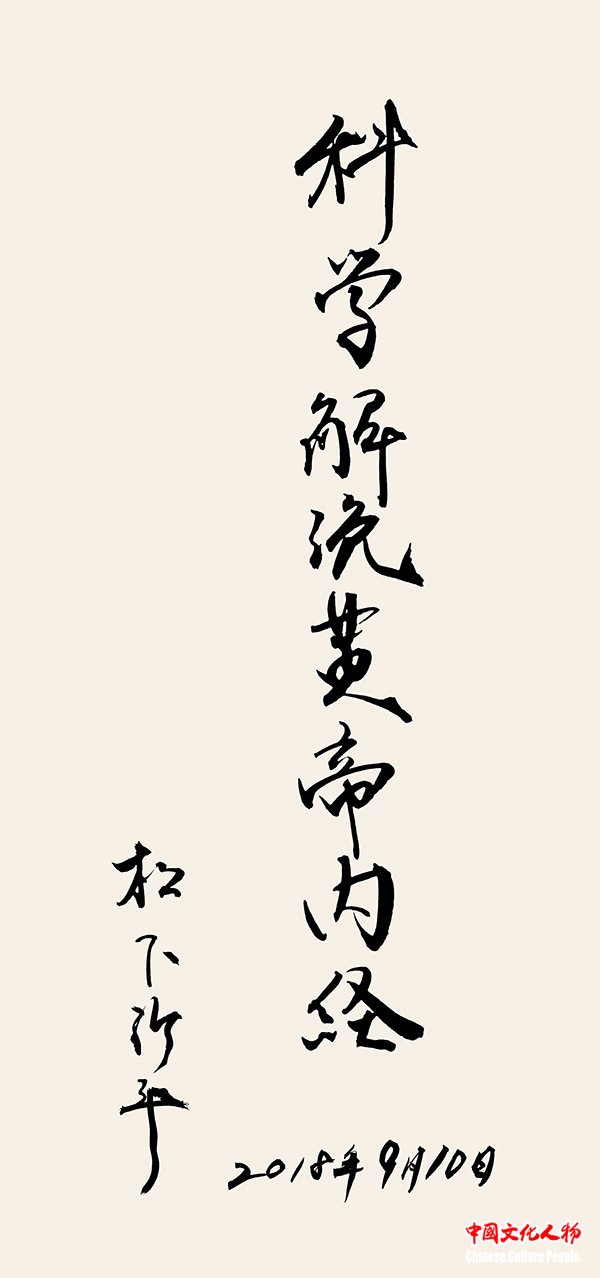 科学解说黄帝内経
松下平
2018年9月10日
中國文化人物
Chinese Culture People